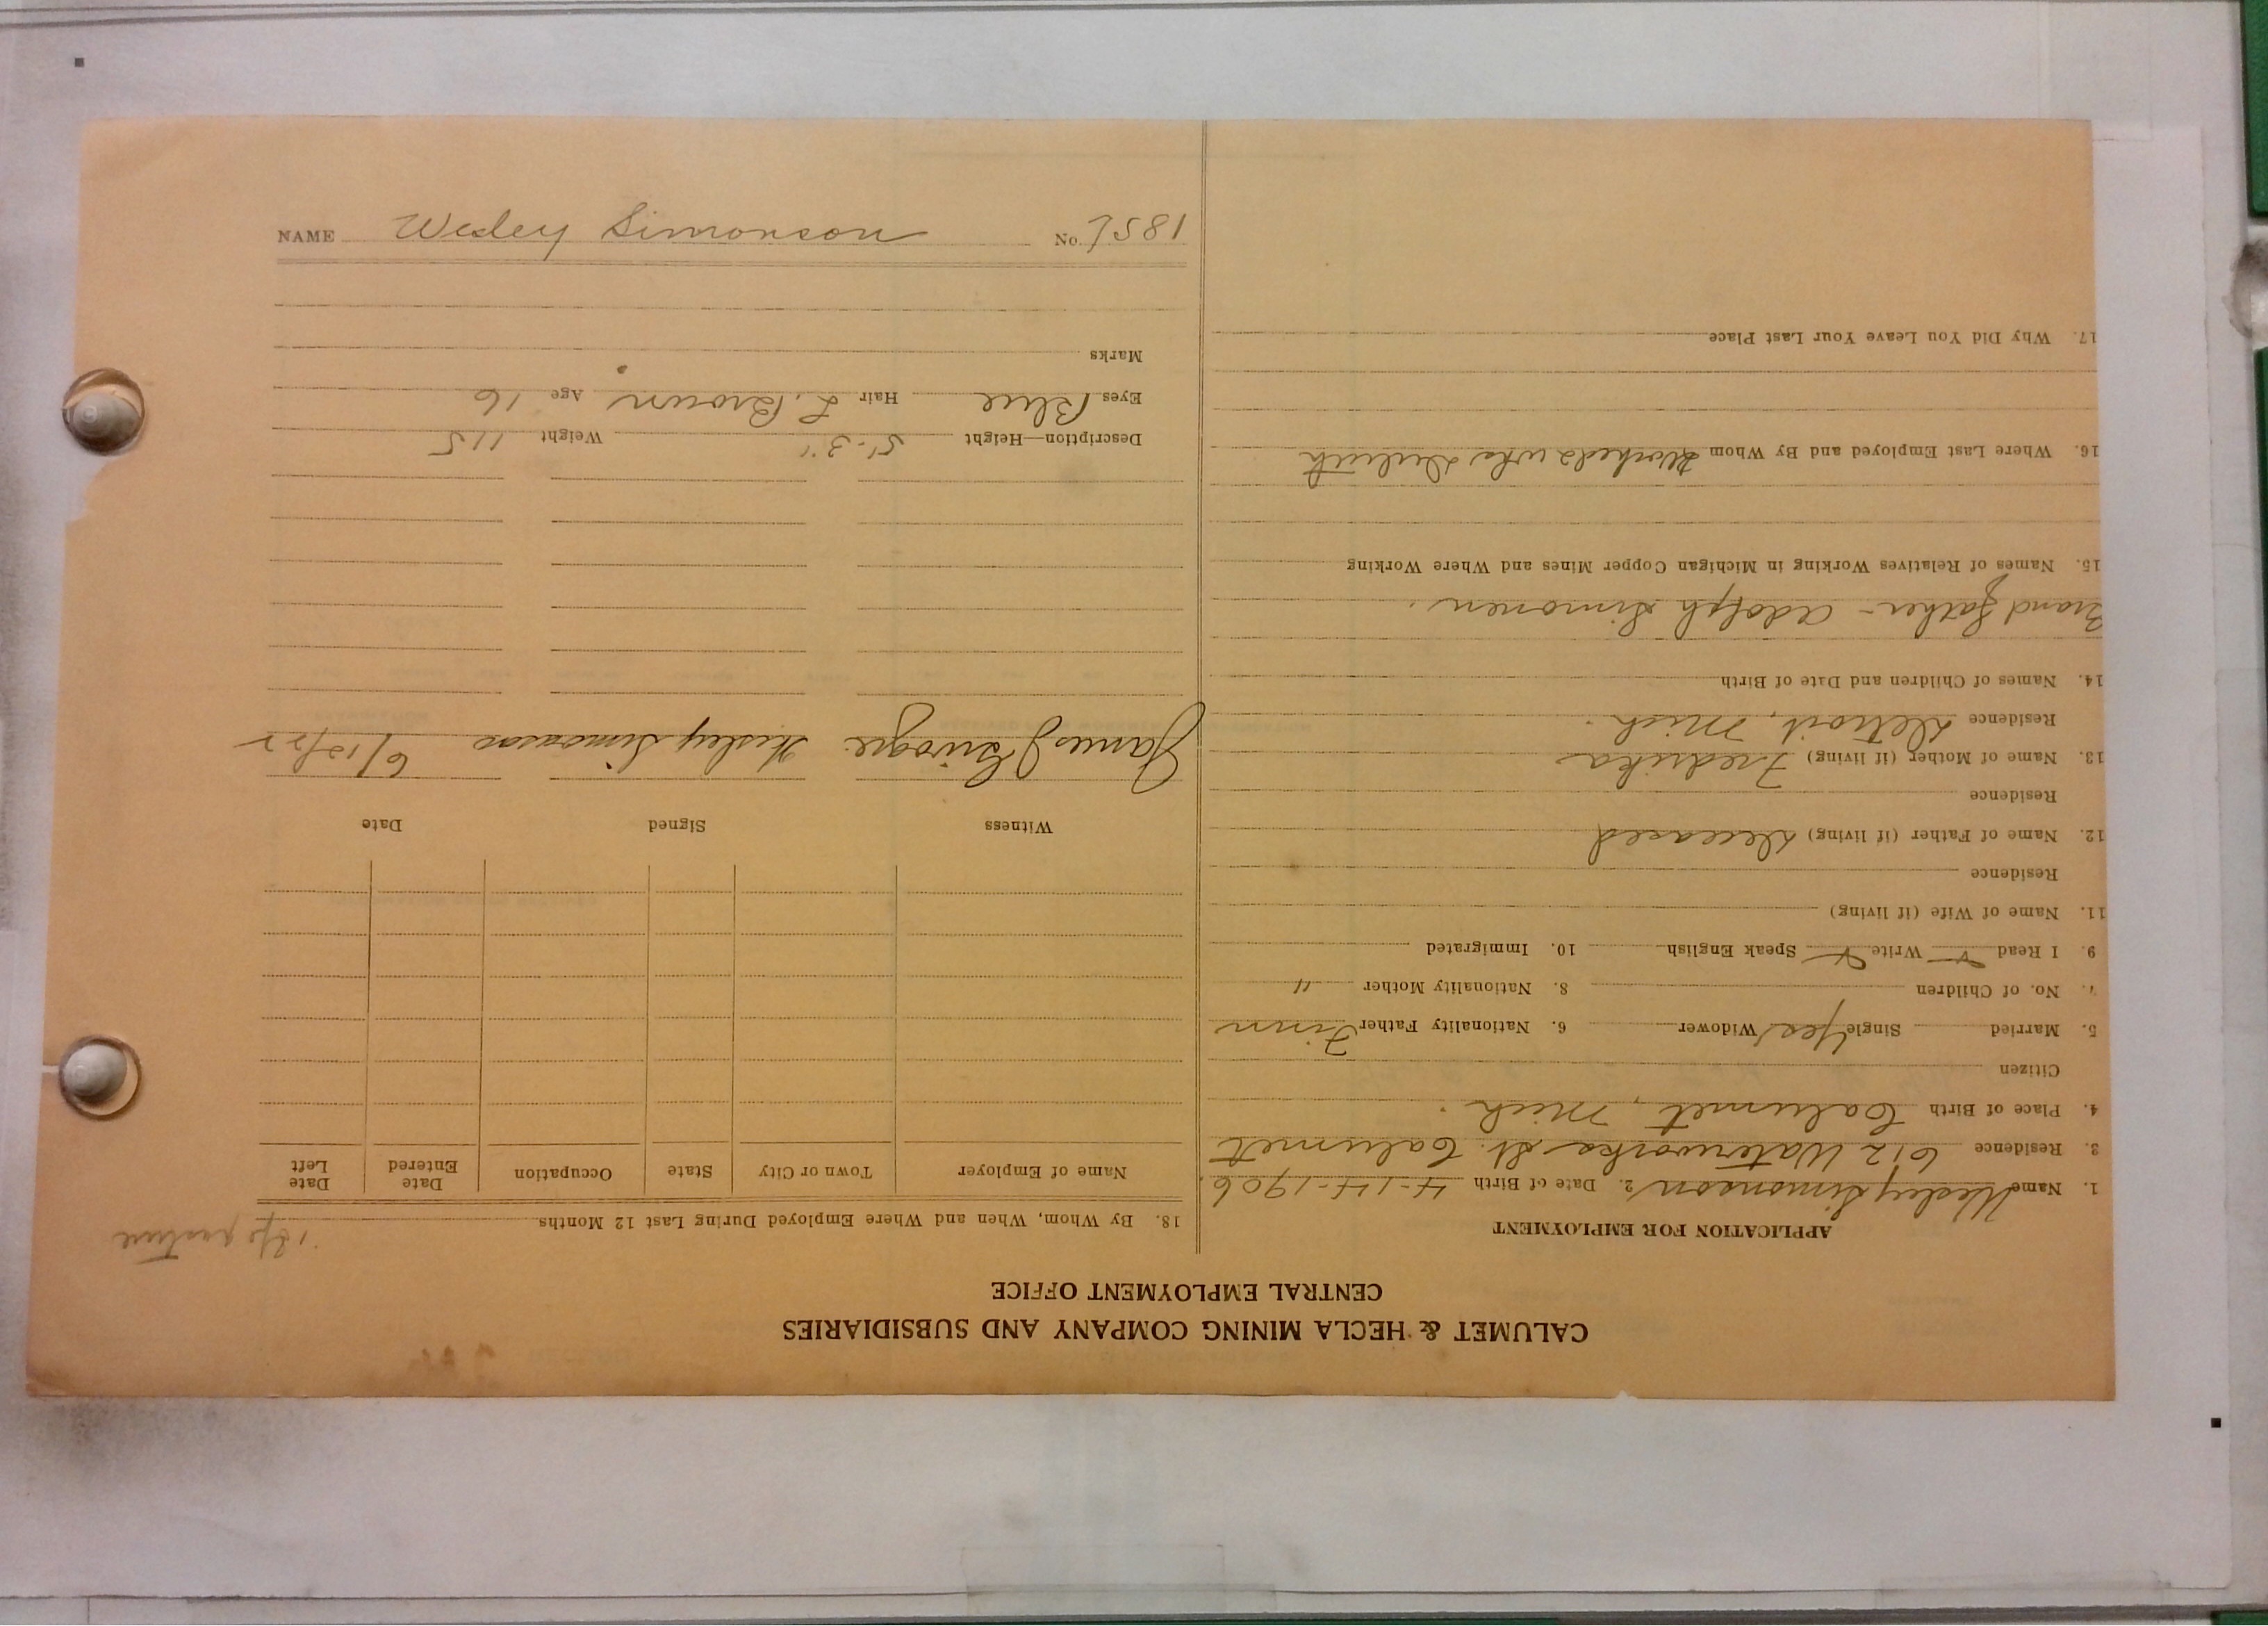 CALUMET & HECLA MINING COMPANY AND SUBSIDIARIES
CENTRAL EMPLOYMENT OFFICE
APPLICATION FOR EMPLOYMENT
1. Name Wesley Simonson 2. Date of Birth 4-14-1906
3. Residence 612 Waterworks St. Calumet
4. Place of Birth Calumet, Mich.
Citizen
5. Married Single Yes Widower 6. Nationality Father Finn
7. No. of Children 8. Nationality Mother "
9. I Read Write Speak English 10. Immigrated
11. Name of Wife (if living)
Residence
12. Name of Father (if living) Deceased
Residence
13. Name of Mother (if living) Fredrika
Residence Detroit, Mich.
14. Names of Children and Date of Birth
Grand father - Adolph Simonen.
15. Names of Relatives Working in Michigan Copper Mines and Where Working
16. Where Last Employed and By Whom Duluth
17. Why Did You Leave Your Last Place
18. By Whom, When and Where Employed During Last 12 Months
Name of Employer Town or City State Occupation Date Entered Date Left
Witness Signed Date
James Wesley Simonson 6/12/22
Description—Height 5'-3" Weight 115
Eyes Blue Hair L. Brown Age 16
Marks
NAME Wesley Simonson No. 7581